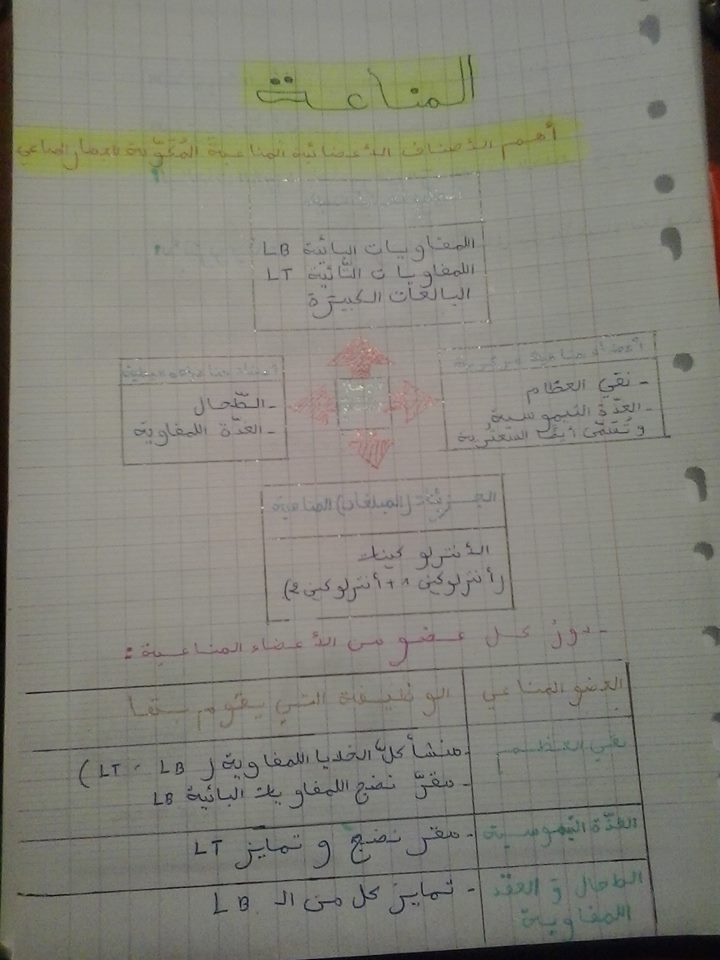 المناعة
أهم الأصناف الأعضائية المناعية المُكَوِّنة للجهاز المناعي
اللمفاويات البائية LB
اللمفاويات التَّائية LT
البالعات الكبيرة
أعضاء مناعية مركزية
- نقي العظام
- الغدّة التيموسية
و تُسَمَّى أيضًا
- الطّحال
- الغدّة اللمفاوية
الجزيئة (المبلغات) المناعية
الأنترلوكينات
(أنترلوكين 1 + أنترلوكين 2)
- دورُ كل عضو من الأعضاء المناعية :
العضو المناعي
الوظيفة التي يقوم بها
نقي العظم
- منشأ كل الخلايا اللمفاوية ( LT - LB )
- مقرّ نضج اللمفاويات البائية LB
الغدّة التيموسية
- مقر نضج و تمايز LT
الطحال و العقد
اللمفاوية
- تمايز كل من الـ LB